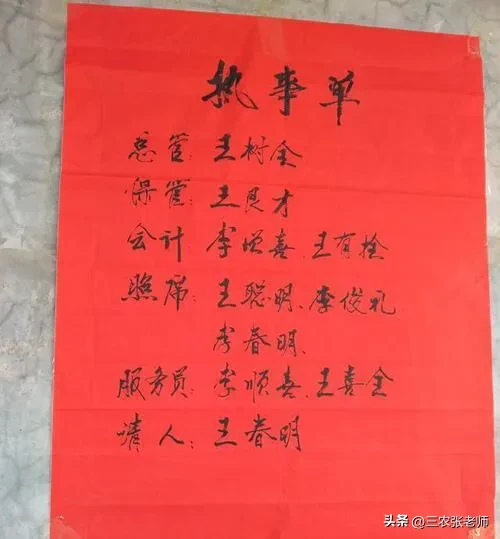 执事单
总管：王树全
保管：王良才
会计：李增喜、王有拴
照席：王聪明、李俊礼
李春明、
服务员：李顺喜、王喜全
请人：王春明
头条 @三农张老师